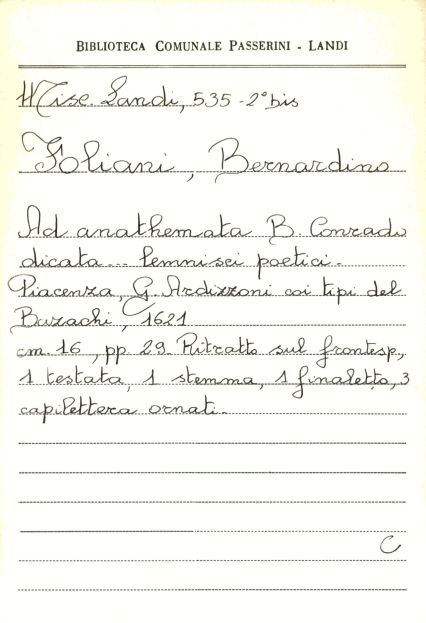 BIBLIOTECA COMUNALE PASSERINI - LANDI
Misc. Landi, 535 - 2° bis
Foliani, Bernardino
Ad anathemata B. Conrado
dicata... lemnisci poetici.
Piacenza, G. Ardizzoni coi tipi del
Bazachi, 1621
cm. 16, pp. 29. Ritratto sul frontesp.,
1 testata, 1 stemma, 1 finaletto, 3
capilettera ornati.
C